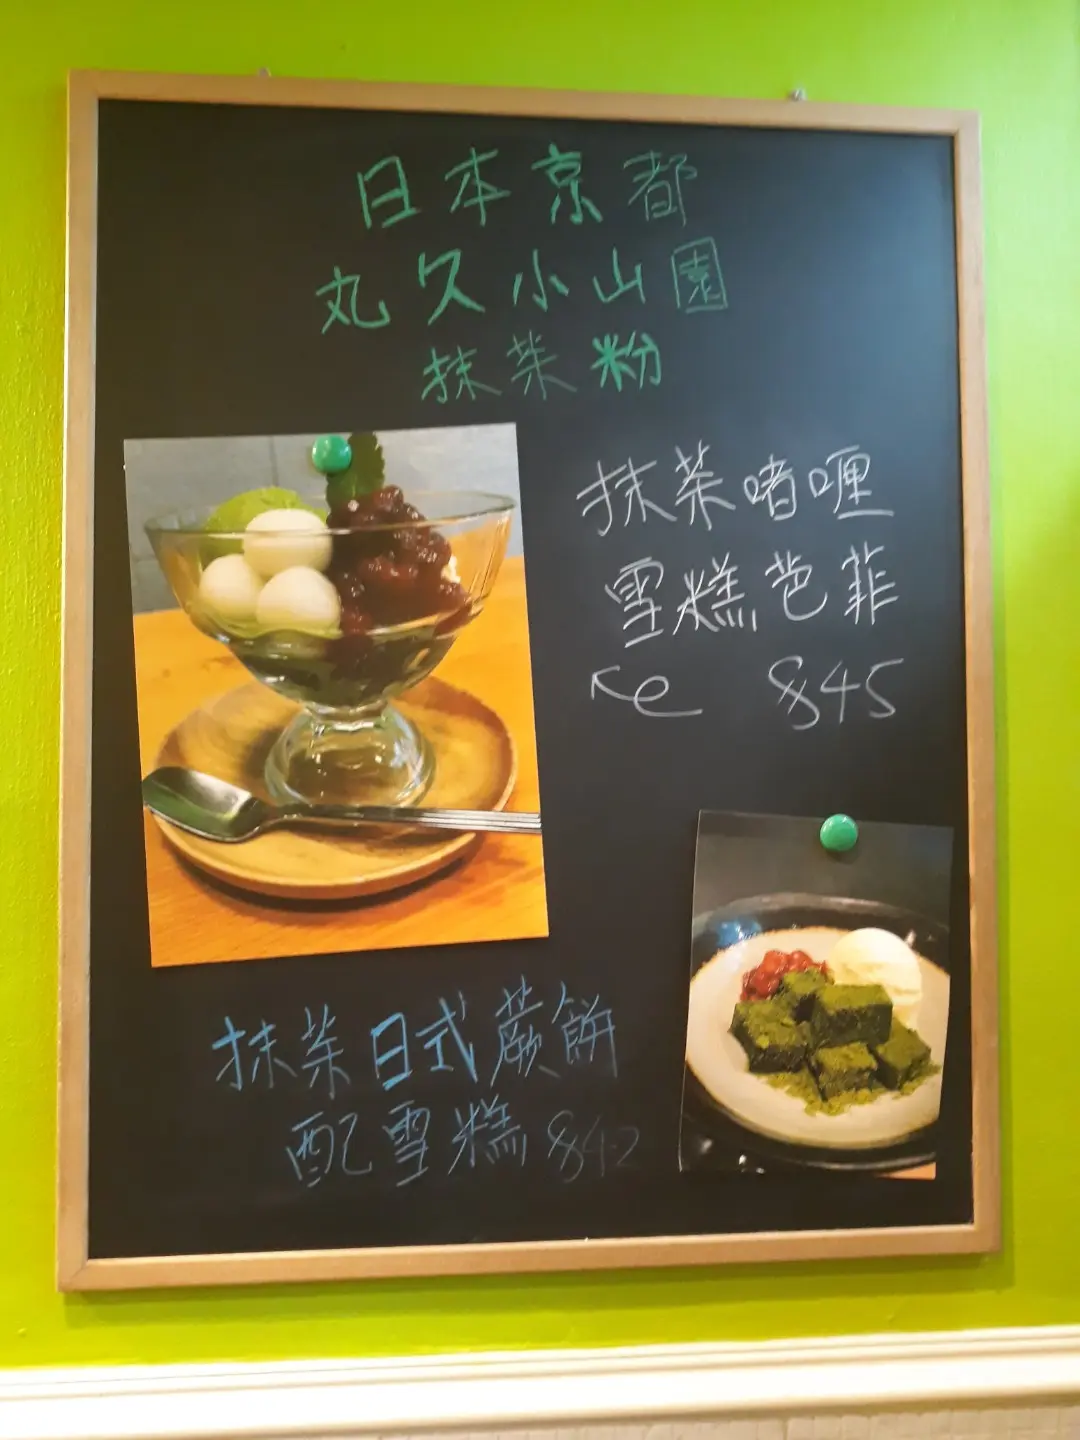 日本京都
丸久小山園
抹茶粉
抹茶啫喱
雪糕芭菲
$45
抹茶日式蕨餅
配雪糕 $42